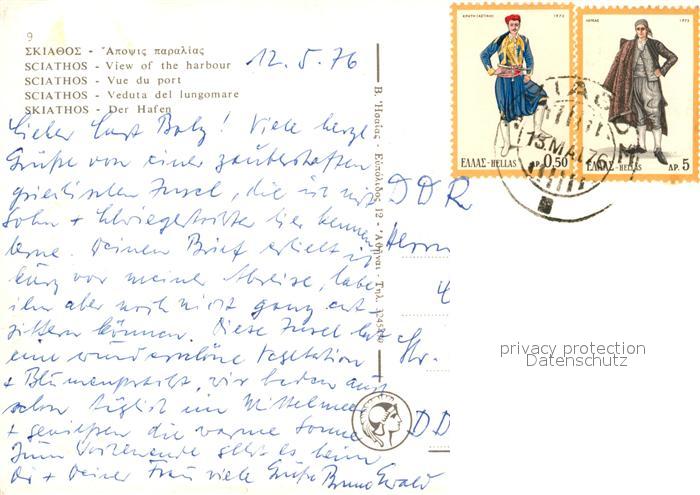 9
ΣΚΙΑΘΟΣ - Ἄποψις παραλίας
SCIATHOS - View of the harbour
SCIATHOS - Vue du port
SCIATHOS - Veduta del lungomare
SKIATHOS - Der Hafen
12.5.76
Lieber Curt Baby! Viele herzl.
Grüße von einer zauberhaften
griechischen Insel, die ich mit
Sohn + Schwiegertochter hier kennen
lerne. Deinen Brief erhielt ich
kurz vor meiner Abreise, habe
ihn aber noch nicht ganz ent-
ziffern können. Diese Insel hat
eine wunderschöne Vegetation
+ Blumenpracht, wir baden auch
schon täglich im Mittelmeer
+ genießen die warme Sonne
Zum Wochenende geht es heim
Dir + Deiner Frau viele Grüße Bruno Ewald
Β. Ἠσαΐας - Εὐπόλιδος 12 - Ἀθῆναι - Τηλ.
DDR
Herrn
4
Str.
DD
1973
ΕΛΛΑΣ-HELLAS
ΔΡ. 0,50
1973
ΕΛΛΑΣ-HELLAS
ΔΡ. 5
13.MAI.76
privacy protection
Datenschutz